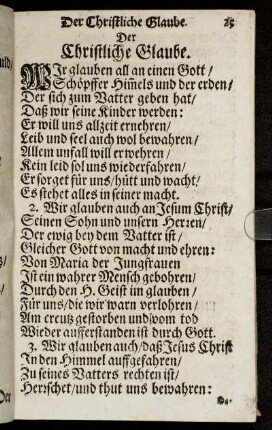 Der Christliche Glaube. 25
Der
Christliche Glaube.
WIr glauben all an einen Gott /
Schöpffer Him̃els und der erden /
Der sich zum Vatter geben hat /
Daß wir seine Kinder werden:
Er will uns allzeit ernehren /
Leib und seel auch wol bewahren /
Allem unfall will er wehren /
Kein leid sol uns wiederfahren /
Er sorget für uns / hütt und wacht /
Es stehet alles in seiner macht.
2. Wir glauben auch an Jesum Christ /
Seinen Sohn und unsern Herꝛen /
Der ewig bey dem Vatter ist /
Gleicher Gott von macht und ehren:
Von Maria der Jungfrauen
Ist ein wahrer Mensch gebohren /
Durch den H. Geist im glauben /
Für uns / die wir warn verlohren /
Am creutz gestorben und vom tod
Wieder aufferstanden ist durch Gott.
3. Wir glauben auch / daß Jesus Christ
In den Himmel auffgefahren /
Zu seines Vatters rechten ist /
Herꝛschet / und thut uns bewahren: